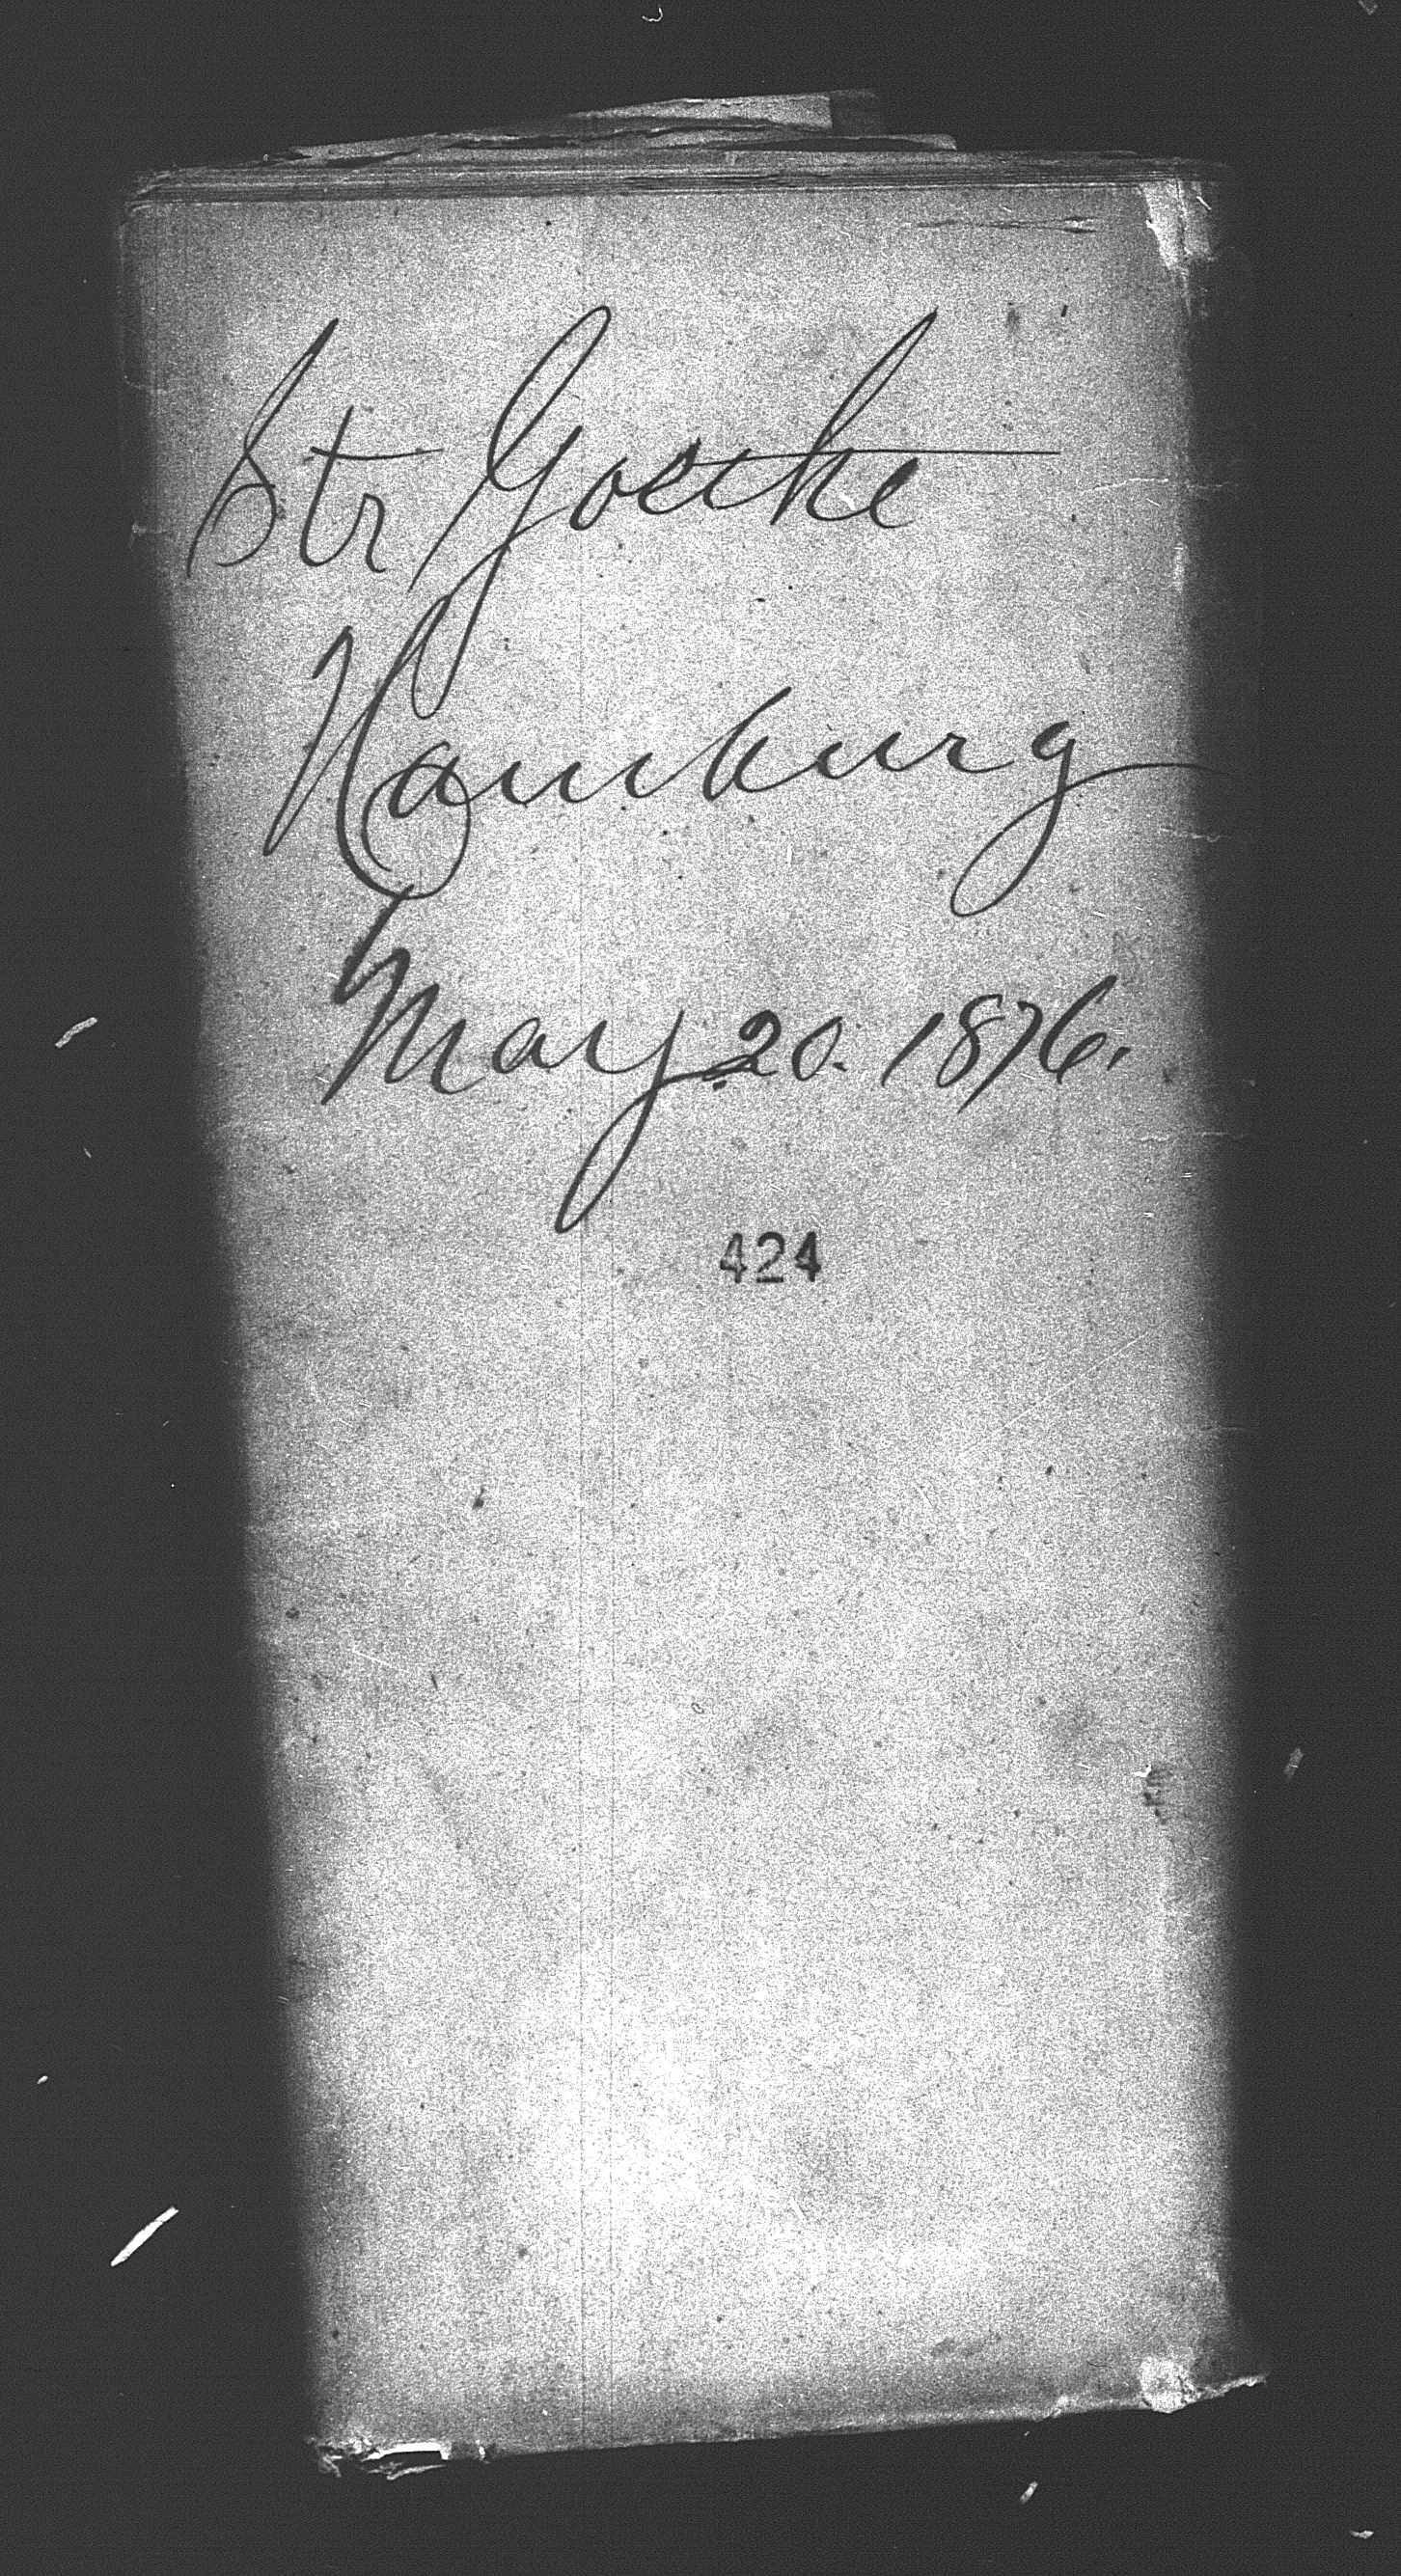 Str Goethe
Hamburg
May 20. 1876.
424